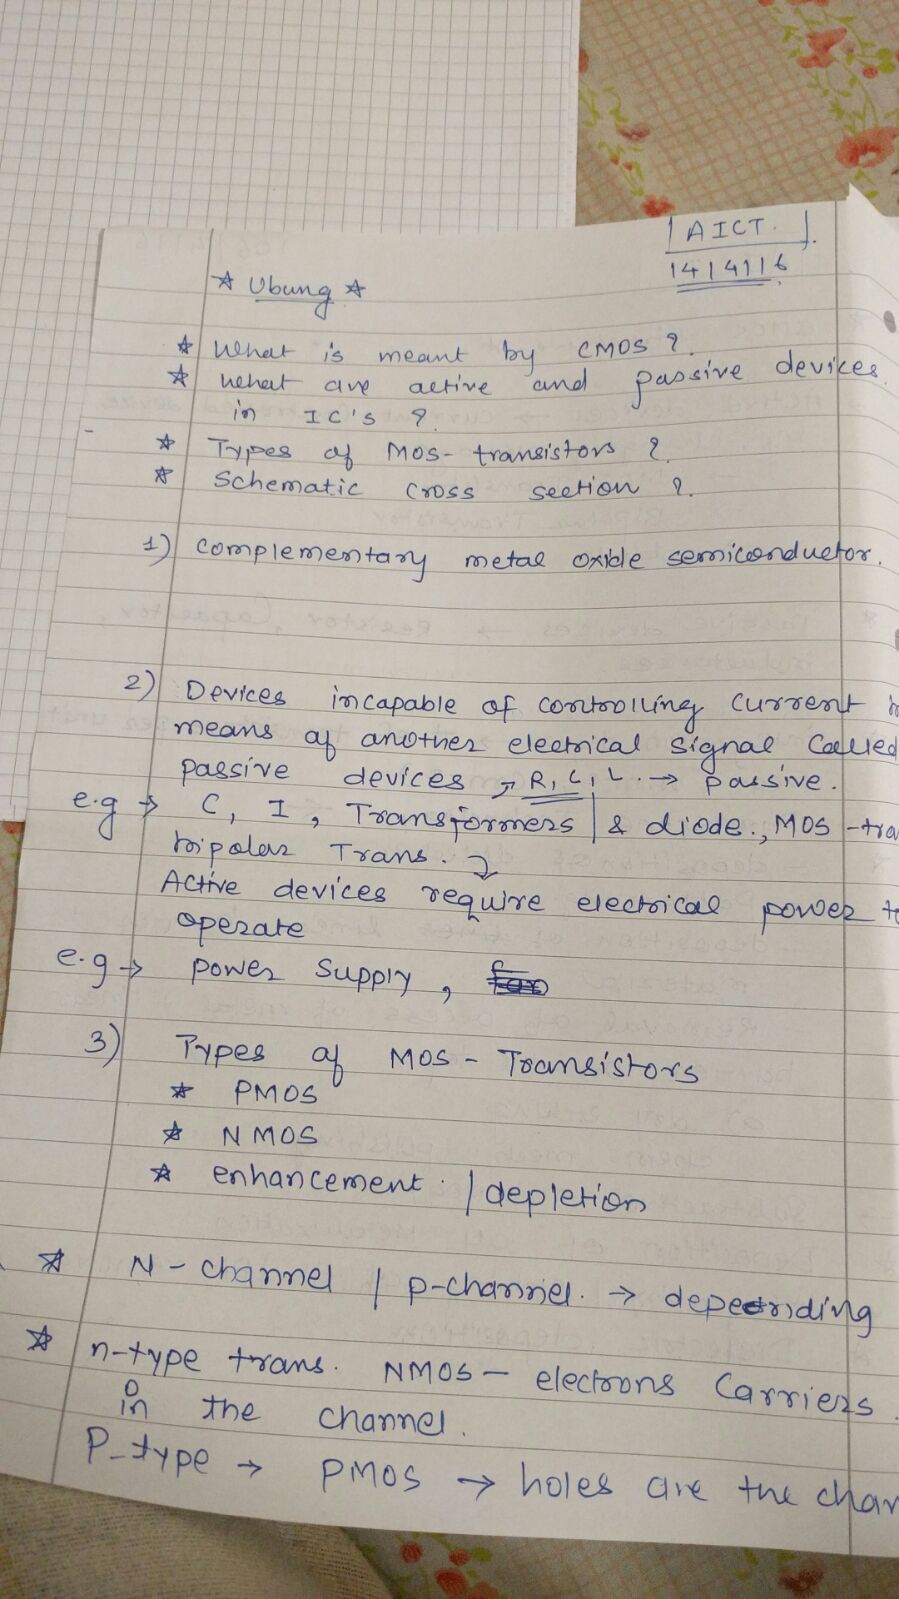 AICT.
14/4/16
☆ Ubung ☆
☆ What is meant by CMOS ?
☆ what are active and passive devices
in IC's ?
☆ Types of MOS-transistors ?
☆ Schematic cross section ?
1) complementary metal oxide semiconductor.
2) Devices incapable of controlling current
means of another electrical signal called
passive devices → R, C, L. → passive.
e.g → C, I, Transformers | & diode., MOS-tra
bipolar Trans.
Active devices require electrical power to
operate
e.g → power supply,
3) Types of MOS - Transistors
☆ PMOS
☆ NMOS
☆ enhancement. / depletion
☆ N-channel / p-channel. → depending
☆ n-type trans. NMOS - electrons carriers
in the channel.
P-type → PMOS → holes are the char